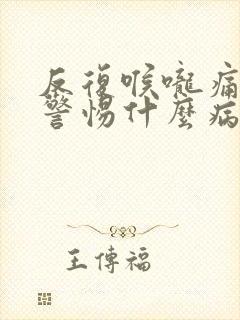 反復喉嚨痛
警惕什麼病
王傳福